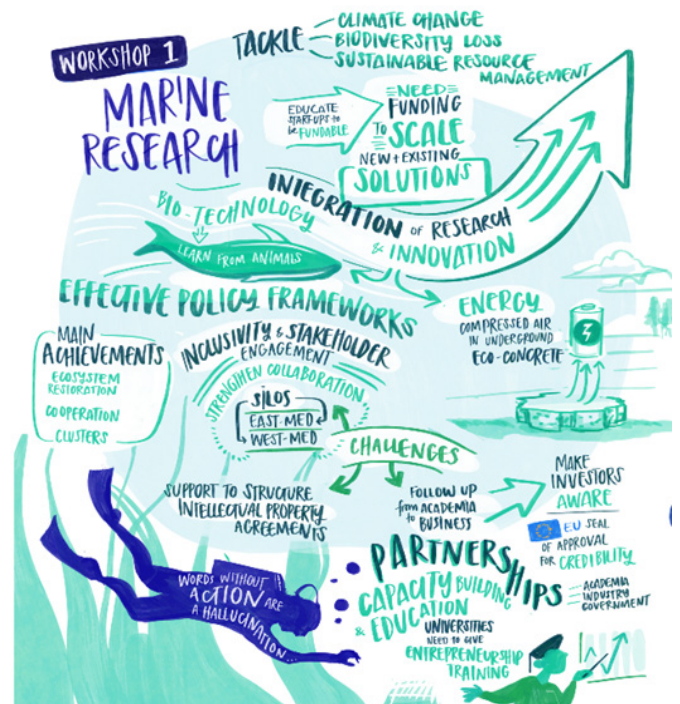 WORKSHOP 1
MARINE
RESEARCH
TACKLE
CLIMATE CHANGE
BIODIVERSITY LOSS
SUSTAINABLE RESOURCE
MANAGEMENT
EDUCATE
START-UPS to
be FUNDABLE
NEED
FUNDING
To SCALE
NEW + EXISTING
SOLUTIONS
INTEGRATION OF RESEARCH
& INNOVATION
BIO-TECHNOLOGY
LEARN FROM ANIMALS
EFFECTIVE POLICY FRAMEWORKS
ENERGY
COMPRESSED AIR
IN UNDERGROUND
ECO-CONCRETE
MAIN
ACHIEVEMENTS
ECOSYSTEM
RESTORATION
COOPERATION
CLUSTERS
INCLUSIVITY & STAKEHOLDER
ENGAGEMENT
STRENGTHEN COLLABORATION
SILOS
EAST-MED
WEST-MED
CHALLENGES
SUPPORT TO STRUCTURE
INTELLECTUAL PROPERTY
AGREEMENTS
FOLLOW UP
from ACADEMIA
to BUSINESS
MAKE
INVESTORS
AWARE
EU SEAL
OF APPROVAL
FOR CREDIBILITY
PARTNERSHIPS
ACADEMIA
INDUSTRY
GOVERNMENT
CAPACITY BUILDING
& EDUCATION
UNIVERSITIES
NEED TO GIVE
ENTREPRENEURSHIP
TRAINING
WORDS WITHOUT
ACTION ARE
A HALLUCINATION...